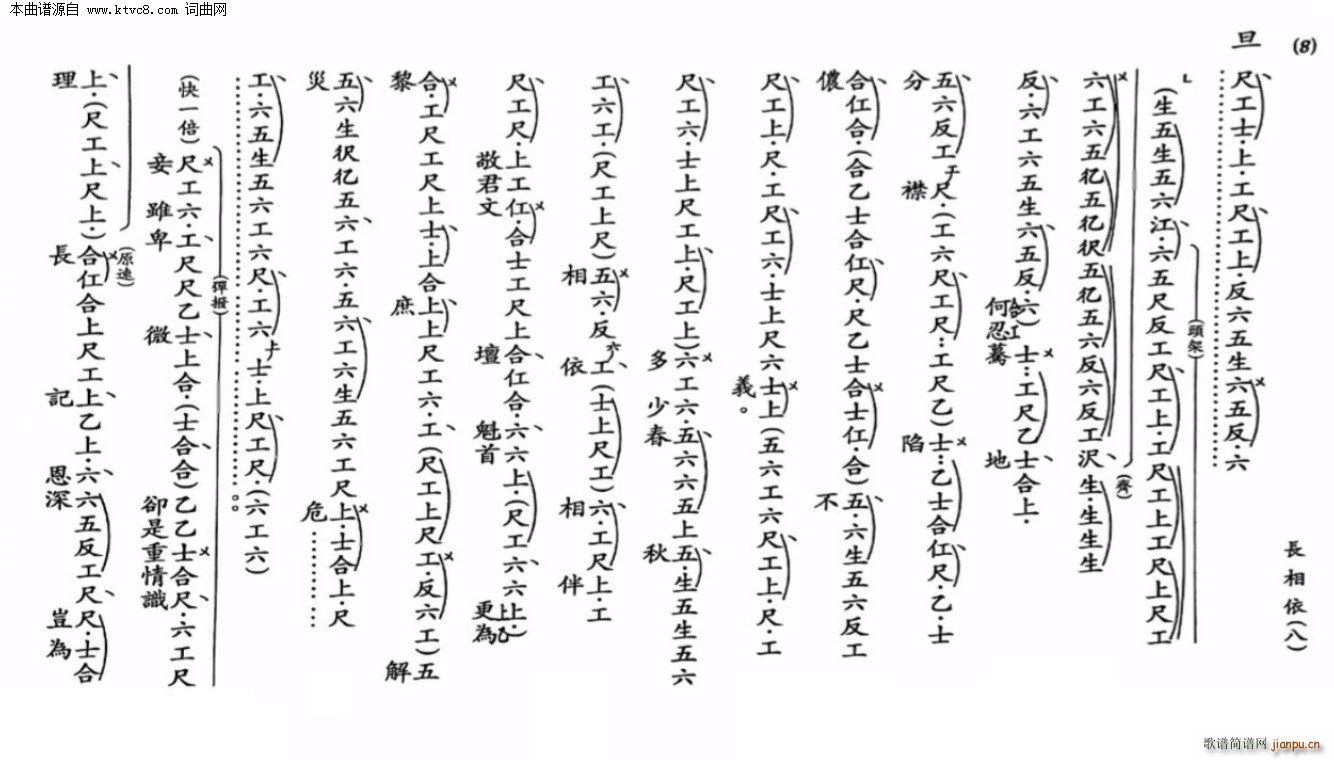 本曲谱源自 www.ktvc8.com 词曲网
(8)
長相依(八)
旦
尺工士·上·工尺工上·反六五生六五反·六
(生五生五六江·六五尺反工尺工上·工尺工上工尺上尺工
(頭架)
六工六五亿五亿伬五亿五六反六反工沢·生·生生生
(齊)
反·六·工六五生六五反·六)士·工尺乙士合上·
合工
何忍驀 地
五六反工尺·(工六尺工尺:工尺乙)士:乙士合仜尺·乙·士
分 襟 陷
合仜合·(合乙士合仜尺·尺乙士合士仜·合)五·六生五六反工
儂 不
尺工上·尺·工尺工六·士上尺六士上(五六工六尺工上尺·工
義。
尺工六·士上尺工上·尺工上)六工六·五六六五上五·生五生五六
多 少春 秋
工六工·(尺工上尺)五六·反工(士上尺工)六·工尺上·工
六
相 依 相 伴
尺工尺·上工仜·合士工尺上合仜合·六六上·(尺工六六上·)
上乙
敬君文 壇 魁首 更為
合·工尺工尺上士·上合上上尺工六·工(尺工上尺工·反六工)五
黎 庶 解
五六生伬亿五六工·六·五六工六生五六工尺上·士合上·尺
災 危
工·六五生五六工六尺·工·六士·上尺工尺·(六工六)
(快一倍)尺工六·工尺尺乙士上合·(士合合)乙乙士合尺·六工尺
(彈撥)
妾 雖卑 微 卻是重情識
上·(尺工上尺上·)合仜合上尺工上乙上·六六五反工尺尺·士合
(原速)
理 長 記 恩深 豈為
歌谱简谱网 jianpu.cn